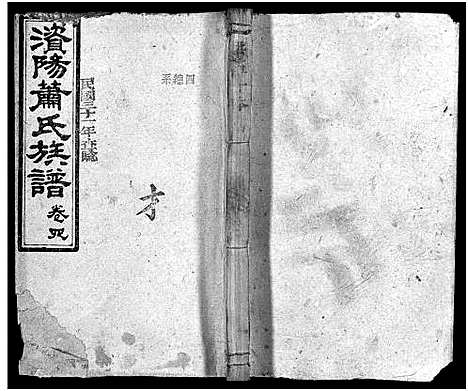 資陽蕭氏族譜
卷四
民國三十一年
四總系
才